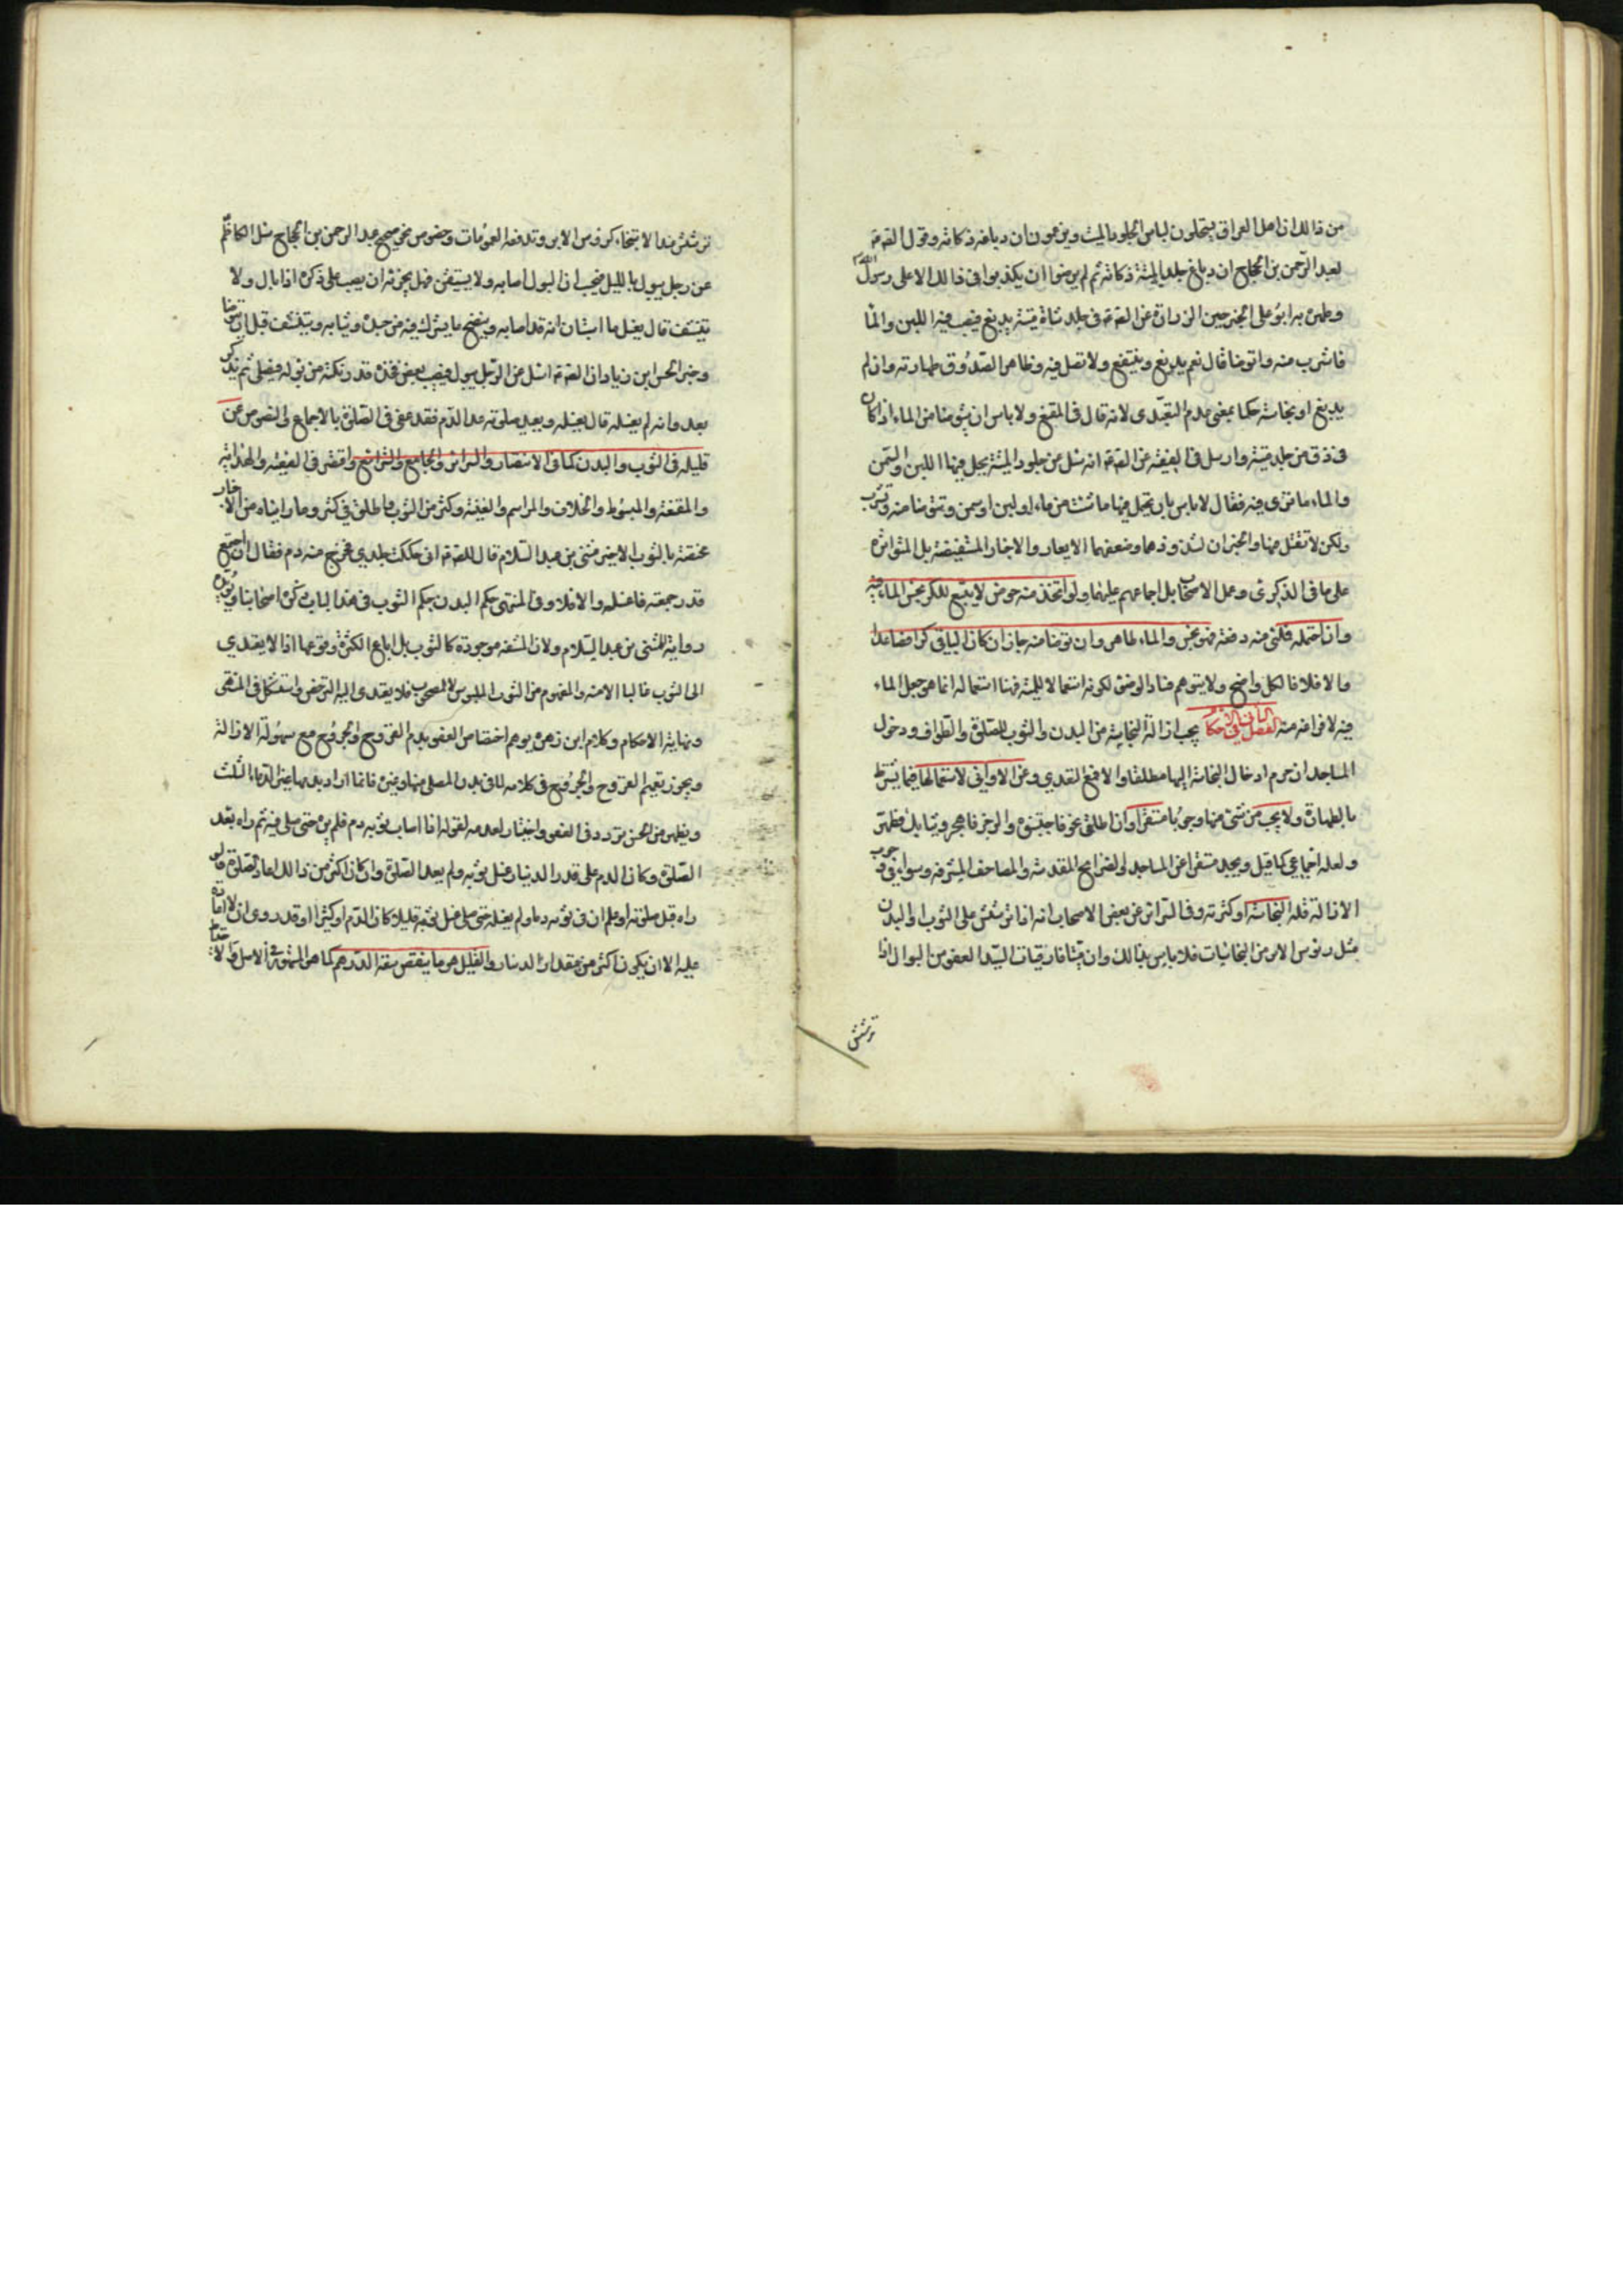 من ذلك ان اهل العراق يستحلون لباس الجلود الميتة ويزعمون ان دباغه ذكاته وقول الصادق
لعبد الرحمن بن الحجاج ان دباغ جلد الميتة ذكاته ثم لم يرضوا ان يكذبوا في ذلك الا على رسول الله
وطهره به ابو علي لخبر حسين الزرارة عن الصادق في جلد شاة ميتة يدبغ فيصب فيه اللبن والماء
فاشرب منه واتوضا قال نعم يدبغ وينتفع ولا تصل فيه وظاهر الصدوق طهارته وان لم
يدبغ او نجاسته حكما بمعنى عدم التعدي لانه قال في المقنع ولا باس ان يتوضا من الماء اذا كان
في زق من جلد ميتة وارسل في الفقيه عن الصادق انه سئل عن جلود الميتة يجعل فيها اللبن والسمن
والماء ما ترى فيه فقال لا باس بان تجعل فيها ما شئت من ماء او لبن او سمن وتتوضا منه وتشرب
ولكن لا تصل فيها والخبران لشذوذهما وضعفهما لا يعارض الاخبار المستفيضة بل المتواترة
على ما في الذكرى وعمل الاصحاب بل اجماعهم عليها ولو اتخذ منه حوض لا يتسع للكر نجس الماء فيه
وان احتمله فلتي منه دفعة فهو نجس والماء طاهر وان توضا منه جاز ان كان الباقي كرا فصاعدا
والا فلا فالكل واضح ولا يتوهم فساد الوضوء لكونه استعمالا للميتة فهنا استعماله انما هو جعل الماء
فيه لا فراغه منه الفصل الثاني في الاحكام يجب ازالة النجاسة من البدن والثوب للصلوة والطواف ودخول
المساجد ان حرم ادخال النجاسة اليها مطلقا والا فمع التعدي وعن الاواني لاستعمالها فيما يشترط
بالطهارة ولا يجب من شئ منها وجوبا مستقرا وان اطلق نحو فاجتنبوه والرجز فاهجر وثيابك فطهر
ولعله اجماعي كما قيل ويجب مستقرا عن المساجد والضرائح المقدسة والمصاحف المشرفة وسواء في وجوب
الازالة قلة النجاسة او كثرته وفي السرائر عن بعض الاصحاب انه اذا ترشش على الثوب او البدن
مثل رؤس الابر من النجاسات فلا باس بذلك وان ميتا فارقيات السيد العفو من البول اذا
ترشش
ترشش عند الاستنجاء كرؤس الابر وتدفعه العمومات وخصوص نحو صحيح عبد الرحمن بن الحجاج سئل الكاظم
عن رجل يبول بالليل فيحسب ان البول اصابه ولا يستيقن فهل يجزئه ان يصب على ذكره اذا بال ولا
يتنشف قال يغسل ما استبان انه قد اصابه وينضح ما يشك فيه من جسده وثيابه ويتنشف قبل ان يتوضا
وخبر الحسن ابن زياد ان الصادق سئل عن الرجل يبول فيصيب بعض فخذه قدر نكتة من بوله فيصلي ثم يذكر
بعد وانه لم يغسله قال يغسله ويعيد صلوته عدا الدم فقد عفي في الصلوة بالاجماع والنصوص عن
قليله في الثوب والبدن كما في الانتصار والسرائر والجامع والشرائع واقتصر في الفقيه والهداية
والمقنعة والمبسوط والخلاف والمراسم والغنية وكثر من الثوب واطلق في كثير وما راينا من الاخبار
مختصة بالثوب الا خبر مثنى بن عبد السلام قال للصادق اني حككت جلدي فخرج منه دم فقال ان اجتمع
قدر حمصة فاغسله والا فلا وفي المنتهى حكم البدن حكم الثوب في هذا الباب ذكره اصحابنا ويؤيده
رواية المثنى بن عبد السلام ولان المشقة موجودة كالثوب بل ابلغ لكثرة وقوعها اذ لا يتعدي
الى الثوب غالبا الا منه والمفهوم من الثوب الملبوس لا المصحوب فلا يتعدى اليه الترخص واستشكل في المنتهى
ونهاية الاحكام وكلام ابن زهره يوهم اختصاص العفو بدم القروح والجروح مع سهولة الازالة
ويجوز تعميم القروح والجروح في كلامه للافي بدن المصلي منها وغيره فانما اراد بدمها غير الدماء الثلث
ويظهر من الحسن تردد في العفو واختيار لعدمه لقوله اذا اصاب ثوبه دم فلم يره حتى صلى فيه ثم راه بعد
الصلوة وكان الدم على قدر الدينار غسل ثوبه ولم يعد الصلوة وان كان اكثر من ذلك اعاد الصلوة ولو
راه قبل صلوته او علم ان في ثوبه دما ولم يغسله حتى صلى غسل ثوبه قليلا كان الدم او كثيرا وقد روى ان لا اعادة
عليه الا ان يكون اكثر من مقدار الدينار والقليل هو ما ينقص سعة الدرهم كما هو المشهور في الاصل والاحتياط